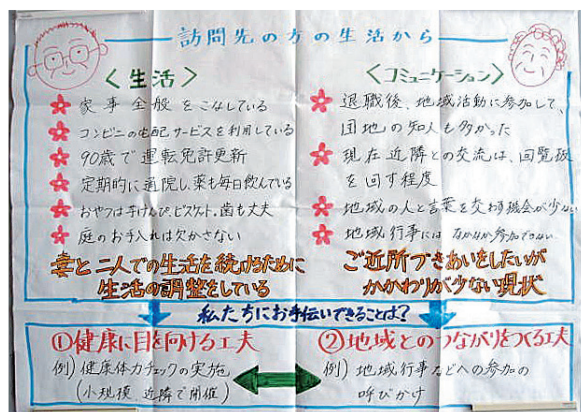 訪問先の方の生活から
〈生活〉
家事全般をこなしている
コンビニの宅配サービスを利用している
90歳で運転免許更新
定期的に通院し、薬も毎日飲んでいる
おやつは芋けんぴ、ビスケット、歯も丈夫
庭のお手入れは欠かさない
妻と二人での生活を続けるために
生活の調整をしている
〈コミュニケーション〉
退職後、地域活動に参加して、
団地の知人も多かった
現在近隣との交流は、回覧板
を回す程度
地域の人と言葉を交わす機会が少ない
地域行事にはなかなか参加できない
ご近所づきあいをしたいが
かかわりが少ない現状
私たちにお手伝いできることは?
①健康に目を向ける工夫
例)健康体力チェックの実施
(小規模、近隣で開催)
②地域とのつながりをつくる工夫
例)地域行事などへの参加の
呼びかけ